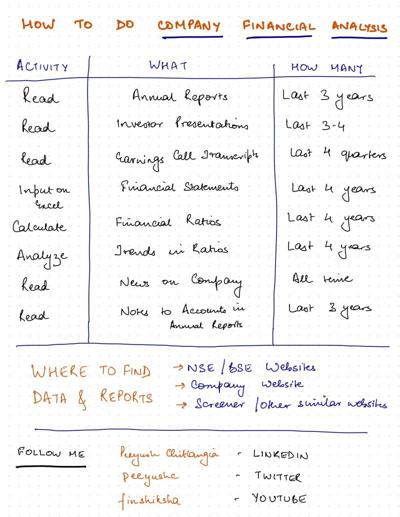 HOW TO DO COMPANY FINANCIAL ANALYSIS
ACTIVITY WHAT HOW MANY
Read Annual Reports Last 3 years
Read Investor Presentations Last 3-4
Read Earnings Call Transcripts Last 4 quarters
Input on Excel Financial Statements Last 4 years
Calculate Financial Ratios Last 4 years
Analyze Trends in Ratios Last 4 years
Read News on Company All time
Read Notes to Accounts in Annual Reports Last 3 years
WHERE TO FIND DATA & REPORTS
→ NSE / BSE Websites
→ Company Website
→ Screener / other similar websites
FOLLOW ME
Peeyush Chitlangia - LINKEDIN
peeyushc - TWITTER
finshiksha - YOUTUBE